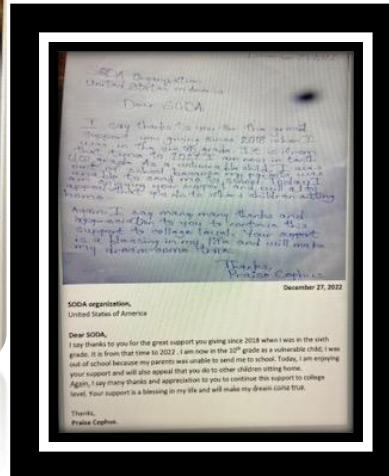 SODA Organization
United States of America
Dear SODA,
I say thanks to you for the great
support you giving since 2018 when I
was in the sixth grade. It is from
that time to 2022. I am now in
10th grade. As a vulnerable child, I was
out of school because my parents was
unable to send me to school. Today, I
am enjoying your support and will also
appeal that you do to other children sitting
home.
Again, I say many many thanks and
appreciation to you to continue this
support to college level. Your support
is a blessing in my life and will make
my dream come true.
Thanks,
Praise Cephus
December 27, 2022
SODA organization,
United States of America
Dear SODA,
I say thanks to you for the great support you giving since 2018 when I was in the sixth
grade. It is from that time to 2022. I am now in the 10th grade as a vulnerable child; I was
out of school because my parents was unable to send me to school. Today, I am enjoying
your support and will also appeal that you do to other children sitting home.
Again, I say many thanks and appreciation to you to continue this support to college
level. Your support is a blessing in my life and will make my dream come true.
Thanks,
Praise Cephus.